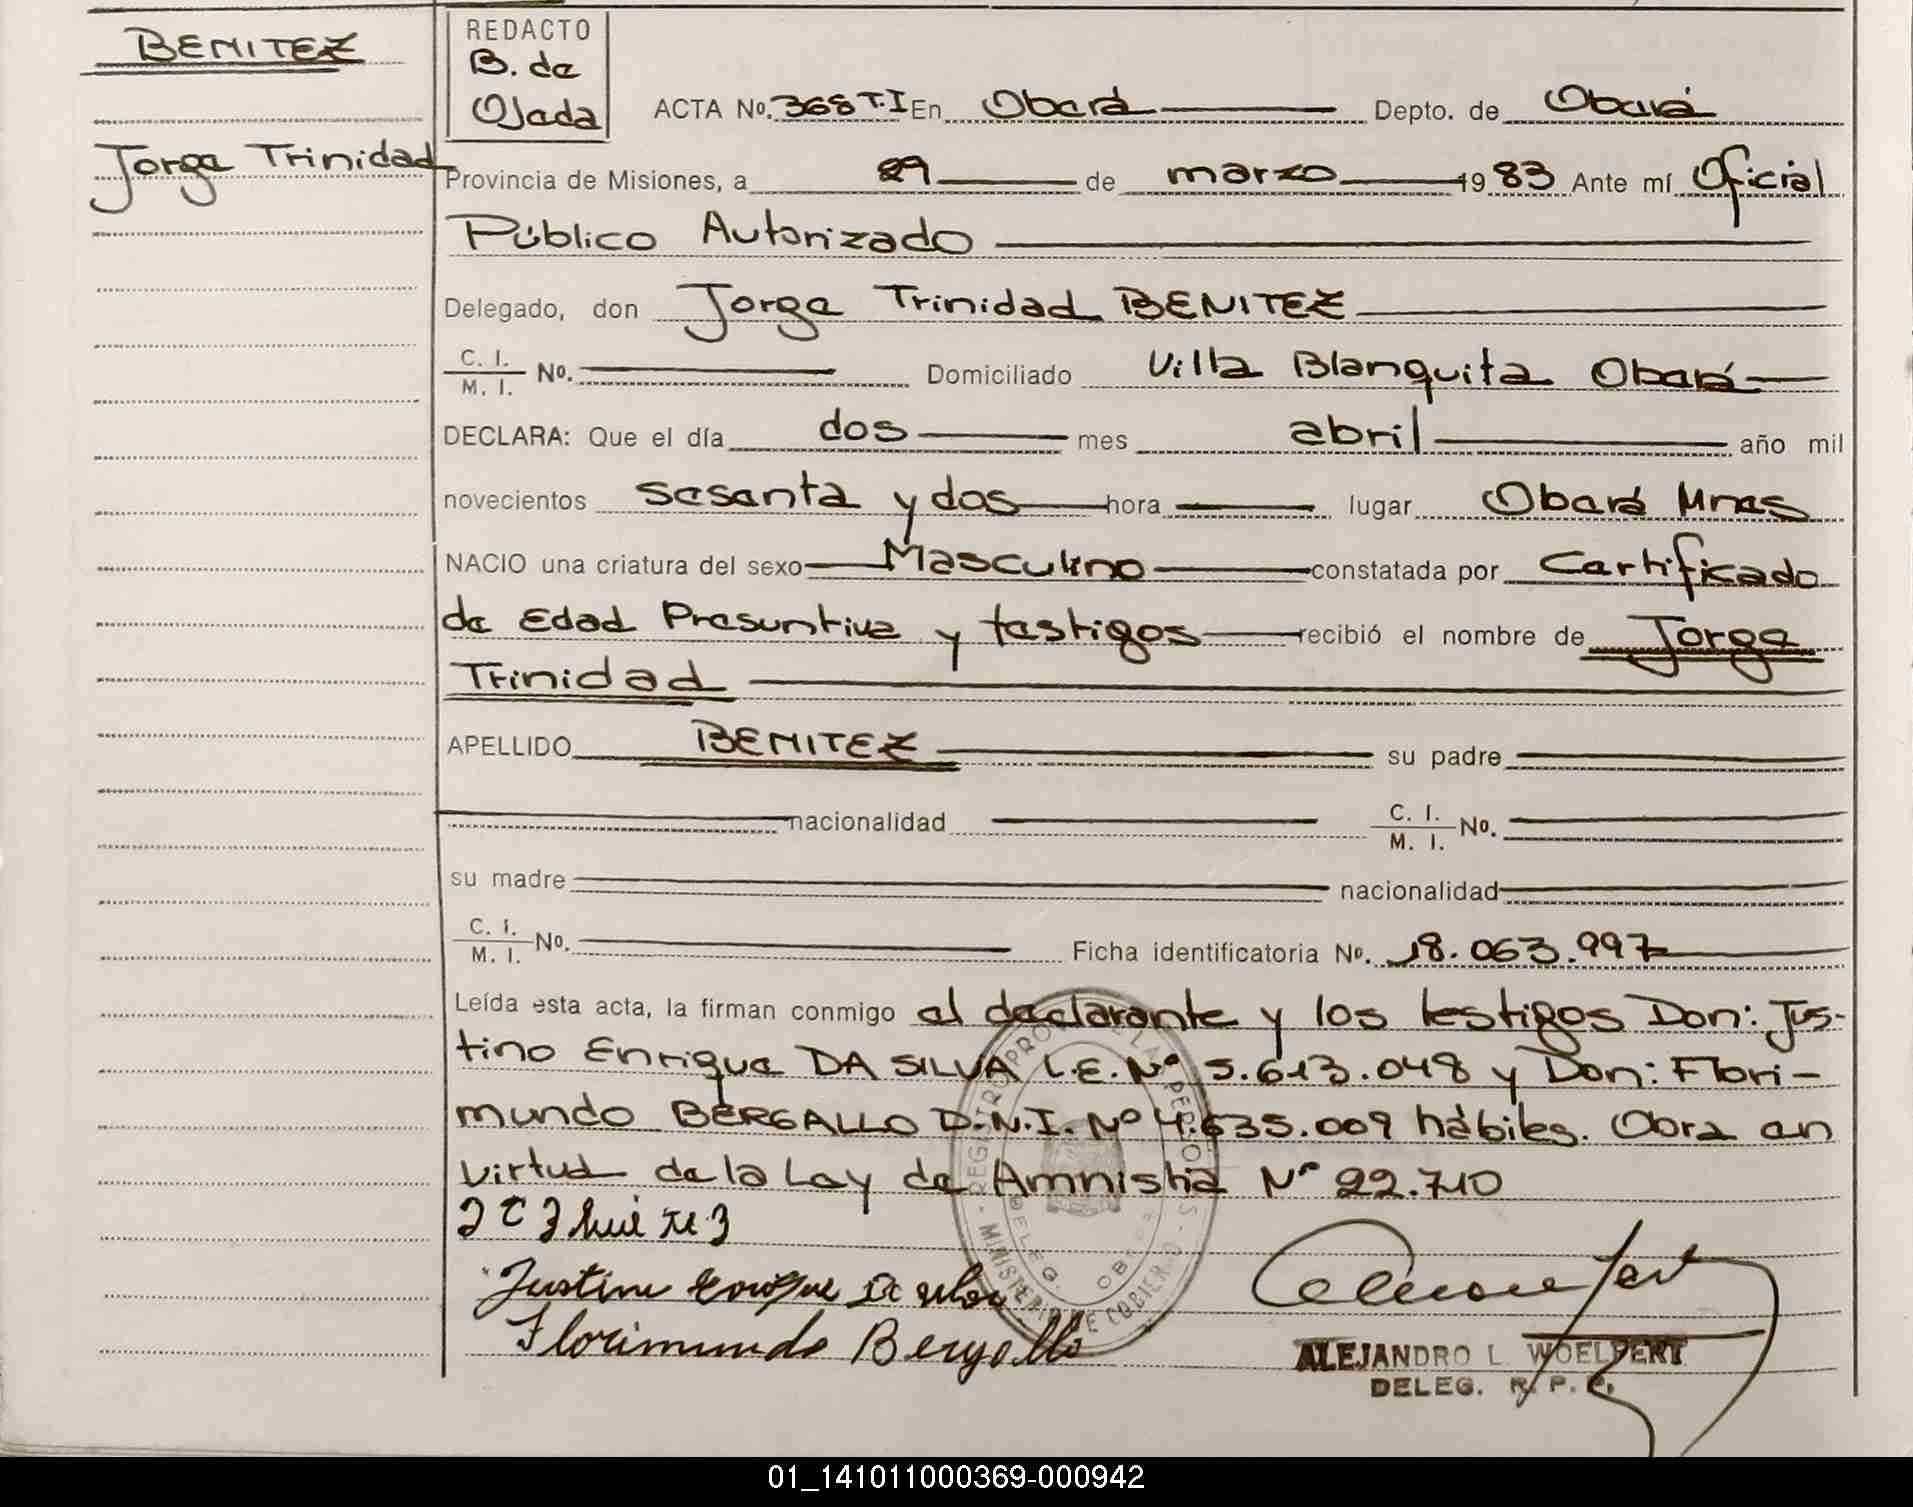 BENITEZ
Jorge Trinidad
REDACTO
B. de
Ojeda
ACTA No. 368 T.I En Oberá Depto. de Oberá
Provincia de Misiones, a 29 de marzo 1983 Ante mí Oficial
Público Autorizado
Delegado, don Jorge Trinidad BENITEZ
C. I.
M. I. No. Domiciliado Villa Blanquita Oberá
DECLARA: Que el día dos mes abril año mil
novecientos sesenta y dos hora lugar Oberá Mnes
NACIO una criatura del sexo Masculino constatada por Certificado
de Edad Presuntiva y testigos recibió el nombre de Jorge
Trinidad
APELLIDO BENITEZ su padre
nacionalidad C. I.
M. I. No.
su madre nacionalidad
C. I.
M. I. No. Ficha identificatoria No. 18.063.997
Leída esta acta, la firman conmigo el declarante y los testigos Don: Jus-
tino Enrique DA SILVA L.E. Nº 5.613.048 y Don: Flori-
mundo BERGALLO D.N.I. Nº 4.635.009 hábiles. Obra en
virtud de la Ley de Amnistia Nº 22.710
Justino Enrique Da silva
Florimundo Bergallo
REGISTRO PROV. DE LAS PERSONAS - MINISTERIO DE GOBIERNO -
DELEG. OBERA
ALEJANDRO L. WOELFERT
DELEG. R. P. P.
01_141011000369-000942